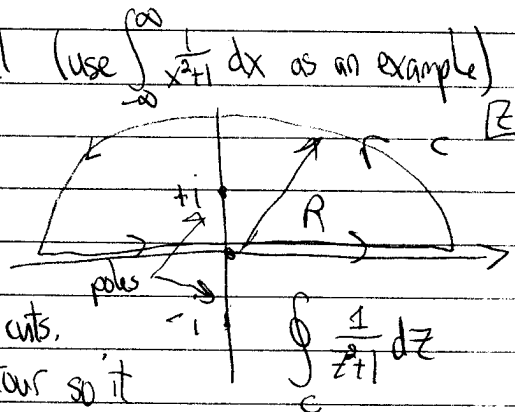 (use ∫_{-∞}^{∞} 1/(x²+1) dx as an example)
C [z
+i
R
poles
-i
cuts.
∮_C 1/(z²+1) dz
our so it